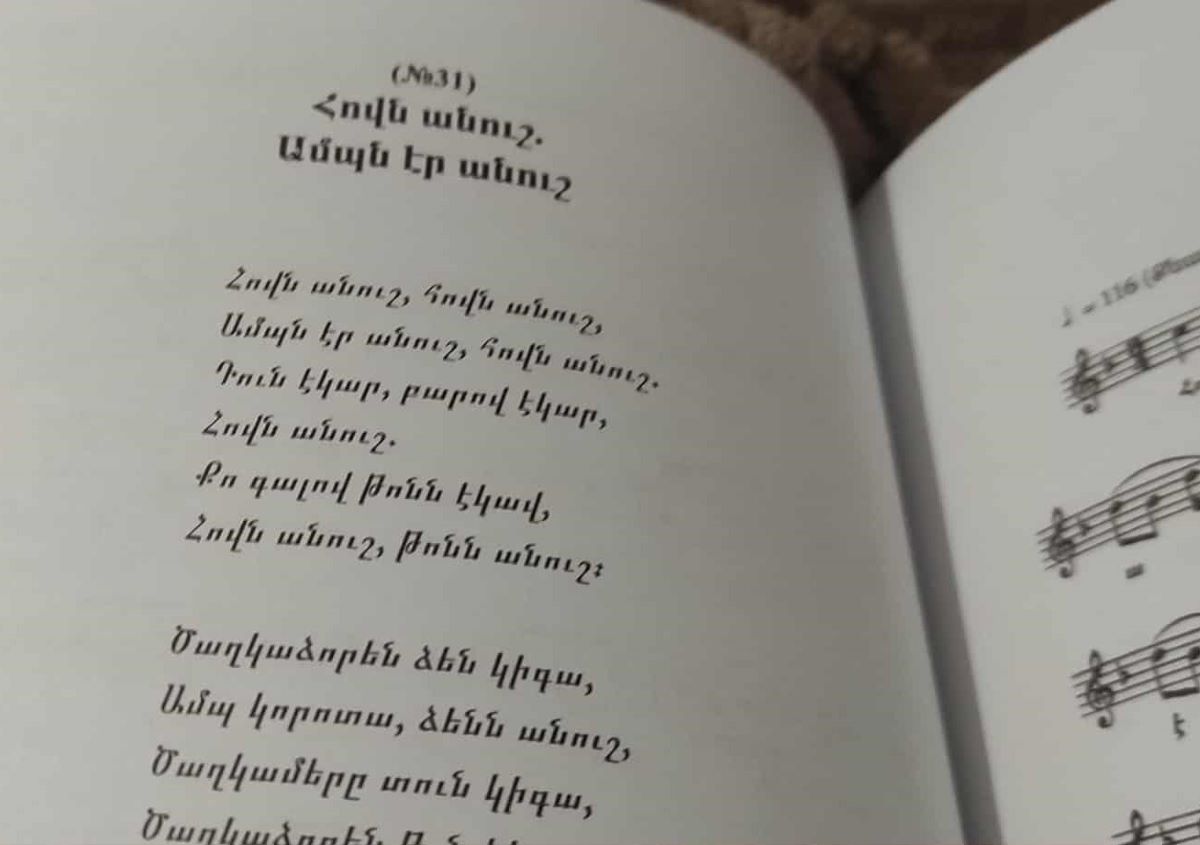 (№31)
Հովն անուշ.
Ամպն էր անուշ
Հովն անուշ, հովն անուշ,
Ամպն էր անուշ, հովն անուշ.
Դուն էկար, բարով էկար,
Հովն անուշ.
Քո գալով թոնն էկավ,
Հովն անուշ, թոնն անուշ։
Ծաղկաձորեն ձեն կիգա,
Ամպ կորոտա, ձենն անուշ,
Ծաղկամերը տուն կիգա,
Ծաղկաձորէն
♩ = 116
ա
է